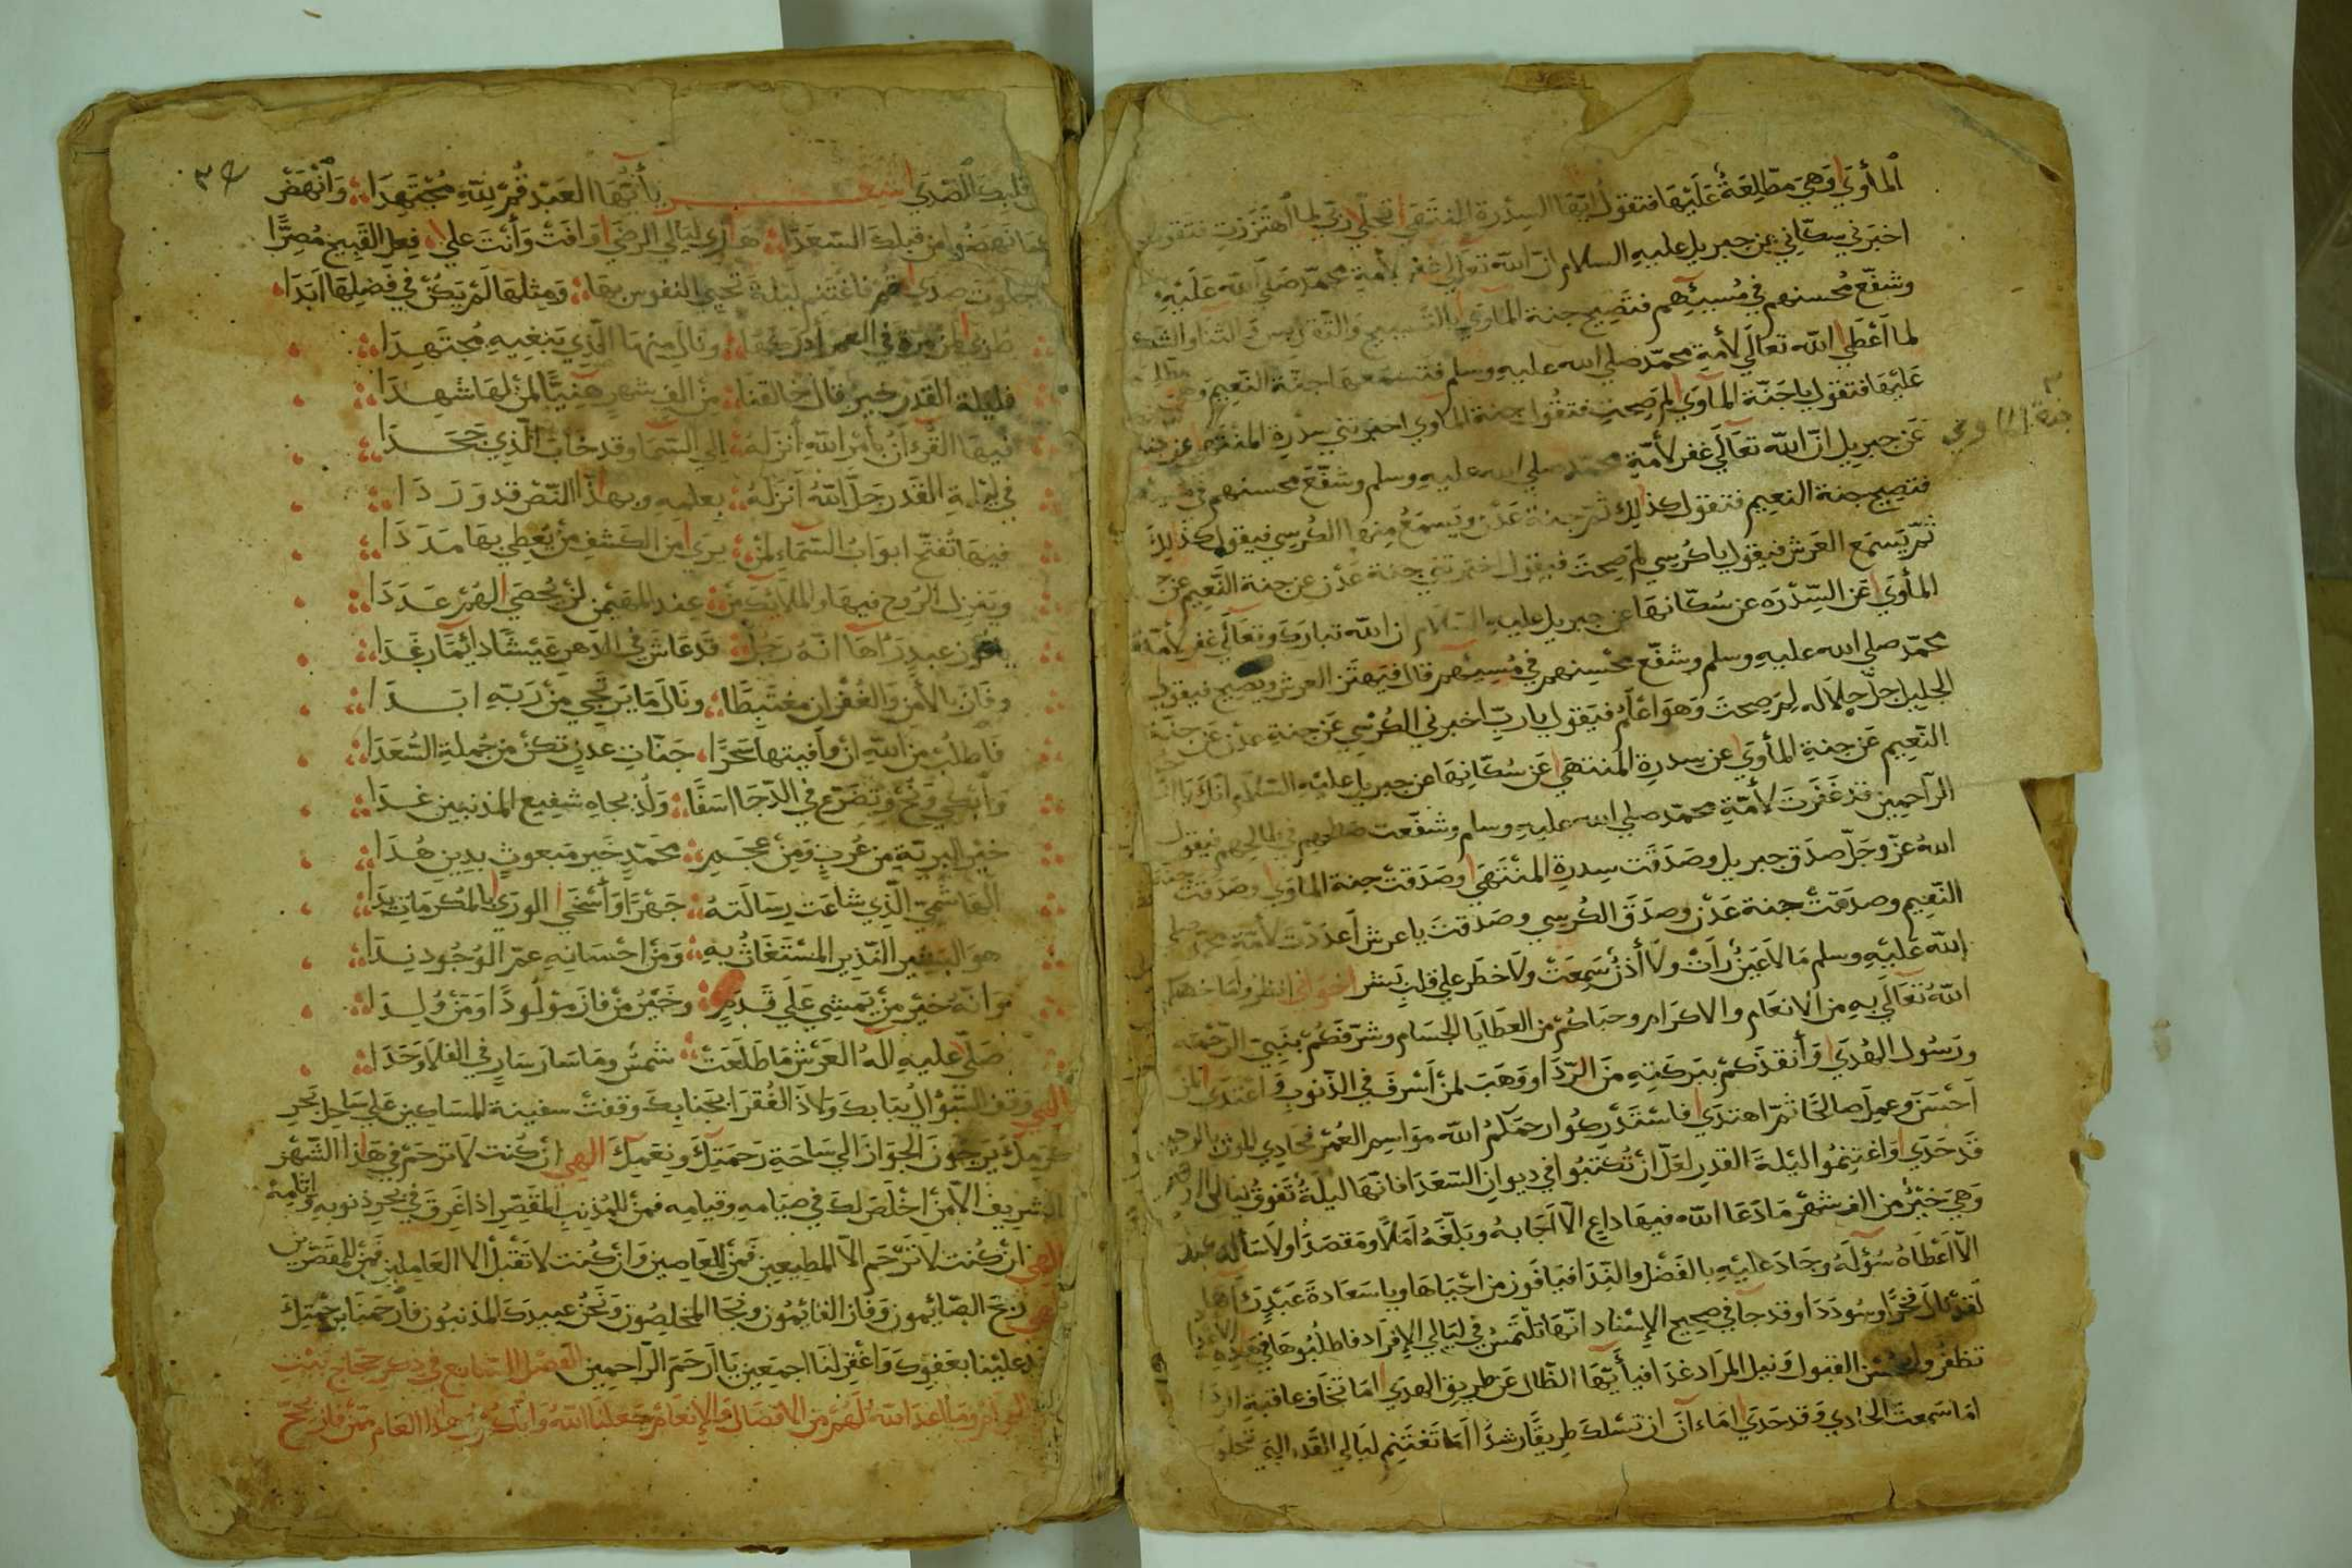 المأوَي وَهيَ مطّلِعَةٌ عَلَيْهَا فتقول ايّها السِدْرة المنتَهَي تجلّي ربّي لما اهتَزَزتِ فتقول
اخبَرني سكّاني عن جبريل عليهِ السلام انّ اللّه تعالَي غفر لأمةِ محمّد صَلّي اللّه عَلَيْهِ
وشفّع مُحسنهم في مُسِيئِهم فتَصِيح جنة المأوَي بالتَسبيح وَالتّقديس والثنا والشك
لما اَعْطَي اللّه تعالَي لأمةِ محمّد صَلي الله عليهِ وسلم فتسمَعهَا جنّة النّعِيم وهي مطلعة
عَليْهَا فتقول ياجَنّة المأوَي لم صِحتِ فتقُول جنة المأوي اخبرتني سِدْرة المنْتهَي عن
عَن جبريل انّ اللّه تعَالَي غفر لأمّةِ محمّد صلي الله عليهِ وسلم وشفّع محسنهم في
جنة الماوي
فتصِيح جنة النعِيم فتقول كذلِك ثمّ جنة عَدْن ويَسمَعُ مِنهَا الكُرسِي فيقول كذلِكَ
ثمّ يَسمَع العَرش فيَقول ياكُرسِي لمَ صِحتَ فيقول اخبرتني جنة عَدْن عن جنة النّعِيم عن
المأْوَي عَن السِّدْرَه عن سُكّانهَا عن جبريل عليهِ السّلام ان اللّه تبارك وتعَالَي غفر لأمّة
محمّد صلي الله عليهِ وسلم وشفّع محْسِنهم في مُسِيئهم قال فيَهتَز العرش ويصِيح فيقول
الجليل جلّ جلاَله لِمَ صِحتَ وَهوَ اعْلَمُ فيَقول يارب اخبرني الكُرْسِي عَن جنةِ عدْن عَن جنّة
النّعِيم عَن جنةِ المأوَي عن سِدرةِ المنْتهَي عَن سُكّانِهَا عن جبريل عليْهِ السّلام انّك يا
الرّاحِمِين قد غَفَرتَ لأُمّةِ محمّد صلي الله عليهِ وسلم وشفّعت صَالحِهم في طالِحِهم فيقول
اللهُ عزّ وجَلّ صدَق جبريل وصَدَقَت سِدرة المنْتَهَي وصَدَقَتْ جنة المأوَي وصَدقتْ جنة
النّعِيم وصدَقتْ جنة عَدْن وصدَقَ الكُرسِي وصَدَقتَ ياعرش اَعدَدْتُ لأمّةِ محمد صلي
اللّه عَليْهِ وسلم مَا لاَ عَينٌ رَأَتْ ولاَ أُذنٌ سَمِعَتْ ولاَ خطَر علي قلبِ بَشر اخواني انظرُوا مَا خصكم
اللّهُ تعَالَي بهِ من الانعَام والاكرَام وحبَاكُمْ من العطَايَا الجسَام وشرّفكمْ بنَبِيّ الرّحْمَه
ورَسُول الهُدَي وَأنقذكمْ ببَركتِهِ مَن الرّدَا ووَهَبَ لمنْ اَسْرفَ في الذّنوبِ وَاعْتدَي لمن
اَحْسَن وعمِلَ صالحًا ثمّ اهتدَي فاسْتَدْركُوا رحمَكُمُ اللّه مَواسِم العُمْر فحَادِي الموت بالرحيل
قَد حَدَي وَاغتنِمُوا ليْلةَ القدر لعَلّ انْ تُكتبُوا في ديوان السّعَدَا فانّهَا ليْلةٌ تَفوقُ ليالي الدهر
وَهِيَ خيْرٌ من الفِ شهْر مَا دَعَا اللّه فيهَا داعٍ الاّ اَجَابهُ وبَلّغَهُ اَمَلاً ومَقصَدًا ولاَ سَأَله عبدٌ
الاّ اَعْطَاهُ سُؤلَهُ وجَادَ عليْهِ بالفَضْل والنّدَا فيَا فوز من اَحْيَاهَا وياسَعَادةَ عَبْدٍ رَآهَا
لقدْ نالَ فخْرًا وسُودَدَا وقد جآ في صحِيح الإسْناد انّهَا تلتمسُ في ليَالي الإفرَاد فاطلُبُوهَا في هذِهِ
تظفرُوا بحُسْن القبُول وَنيل المرَاد غدَا فيأَيّهَا الظّال عَن طرِيق الهدَي امَا تخَاف عاقبةِ الردَا
امَا سَمِعتَ الحادي وَقد حَدَي امَا ءآنَ ان تَسْلك طرِيقًا رشدًا امَا تَغتَنِم ليَالي القَدر التي تجلو
عن قلبك الصّدَي شعر يأَيّهَا العَبْد قُمْ للّهِ مُجْتَهِدَا وَانْهَضْ
كمَا نهَضُوا من قبلِكَ السّعَدَا هَذي ليَالي الرضَي وَافَتْ وَأنْتَ علي فِعل القَبِيح مُصِرًّا
ماجلوت صدَي قم فاغتنِم ليْلةً تحيِي النفوس بهَا وَمِثلهَا لَمْ يَكُنْ في فَضلهَا اَبَدَا
طُوبَي لمن مَرّة في العمر أدركهَا ونالَ مِنهَا الّذِي يَبْغِيهِ مُجتَهِدَا
فليْلة القَدر خيرٌ قال خالقنَا من الف شهرٍ هنِيًّا لمَن لهَا شهِدَا
فيهَا القُرءانُ بأَمْر اللّهِ اُنزلَهُ إلي السّمَا وقد خابَ الّذِي جَحَدَا
في ليْلةِ القَدر جَلّ اللّهُ اَنْزَلَهُ بعِلمهِ وبهذَا النّصّ قد وَرَدَا
فيهَا تُفتّح ابوَابُ السّمَاءِ لمَنْ يرَي من الكَشفِ منْ يُعْطِي بهَا مَدَدَا
ويَنزل الرُّوح فيهَا والملآئكَة منْ عِند المهَيمن لنْ تُحصَي لهُمْ عَدَدَا
يافوز عبدٍ رَآهَا انّه رَجُلٌ قد عَاشَ في الدّهر عَيْشًا دائِمًا رغَدَا
وفَازَ بالأَمن وَالغُفرَان مغتَبِطًا ونَالَ مَا يَرتَجِي مِنْ رَبّهِ اَبَدَا
فاطلُبْ من اللّهِ انْ وَافيتهَا سَحَرًا جَنّاتِ عدنٍ تكنْ من جُملةِ السّعَدَا
وَأبْكِي وَنُحْ وَتَضرّع في الدّجَا اسَفًا وَلُذْ بجَاهِ شفِيع المذنبِين غدَا
خيْر البريّةِ مِن عُربٍ ومِنْ عجَمٍ محَمّدٍ خَير مَبعوثٍ بدِين هُدَا
الهَاشِميّ الّذِي شاعَت رِسَالَتهُ جَهْرًا وَأَسْخَي الورَي بالمكْرمَاتِ يَدَا
هوَ البشِير النّذِير المسْتَغَاثُ بهِ وَمَنْ اِحْسَانهِ عَمّ الوُجُود نِدَا
وَانّهُ خيرُ مَنْ يَمشِي عَلَي قَدَمٍ وخَيْرُ مَنْ فازَ مَوْلُودًا وَمَنْ وُلِدَا
صَلّي عليهِ إلهُ العَرْشِ مَا طَلَعَتْ شمسٌ ومَا سَارَ سَارٍ في الفلاَ وَحَدَا
الهي وقف السّؤال ببَابكَ وَلاَذَ الفُقرَا بجَنابكَ وَقفتْ سفِينة المسَاكِين عَلي سَاحِل بَحْرِ
كرَمِكَ يَرْجُونَ الجَوَازَ إلي سَاحَةِ رَحمَتِكَ وَنِعَمِكَ الهي إنْ كُنتَ لاَ تَرحَمْ في هَذا الشّهْر
الشريف الاّ منْ اَخْلصَ لكَ في صيَامهِ وقيَامِه فمنْ للمُذنِب المقَصّر اذا غَرِقَ في بحرِ ذنوبهِ وَآثامِهْ
الهي انْ كُنتَ لاَ تَرْحَم الاّ المطِيعِين فَمَنْ للعَاصِين وَانْ كُنتَ لاَ تَقْبَل الاّ العَامِلين فَمنْ للمقَصّرِين
الهي رَبحَ الصّائِمون وَفَاز القائِمُون وَنجَا المخلِصُون وَنَحْنُ عبيدكَ المذنبُون فاَرْحَمْنَا برَحْمتِكَ
وجد عليْنا بعَفوِكَ وَاغفِرْ لنَا اجمَعِين يَا اَرحَمَ الرّاحِمِين الفَصْل السّابع في ذكر حجّاج بَيْت
اللّه الحرَام ومَا اعدّ اللّهُ لهُمْ من الافضَال والإنعَام جَعلنَا اللّهُ وَايّاكُمْ في هَذا العَام مِمّن فاز بحَجّ